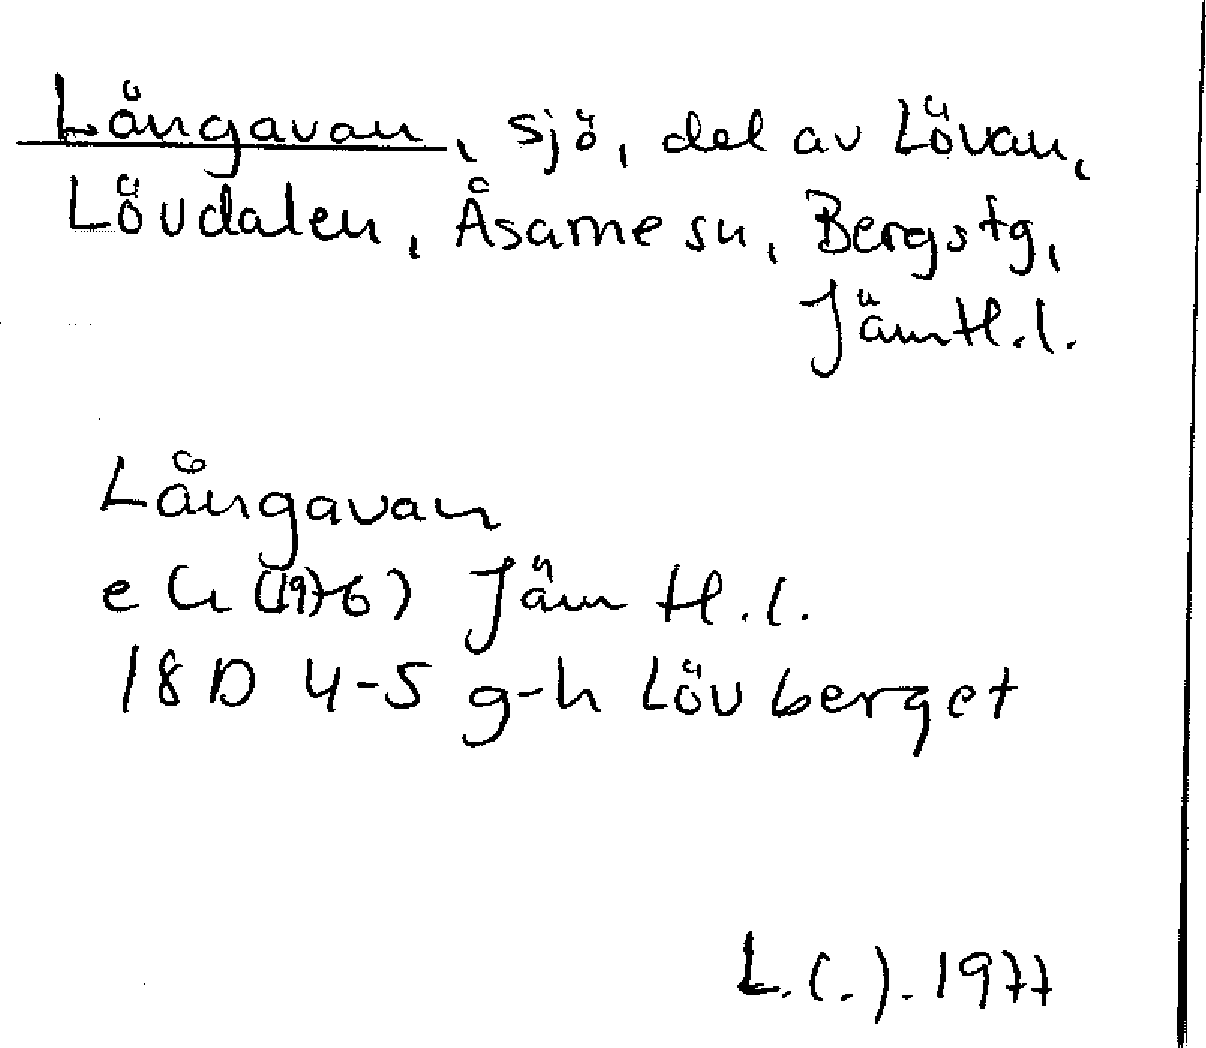 Långavan, sjö, del av Lövan,
Lövdalen, Åsarne sn, Bergs tg,
Jämtl.l.
Långavan
ek (1976) Jämtl.l.
18D 4-5 g-h Lövberget
1977